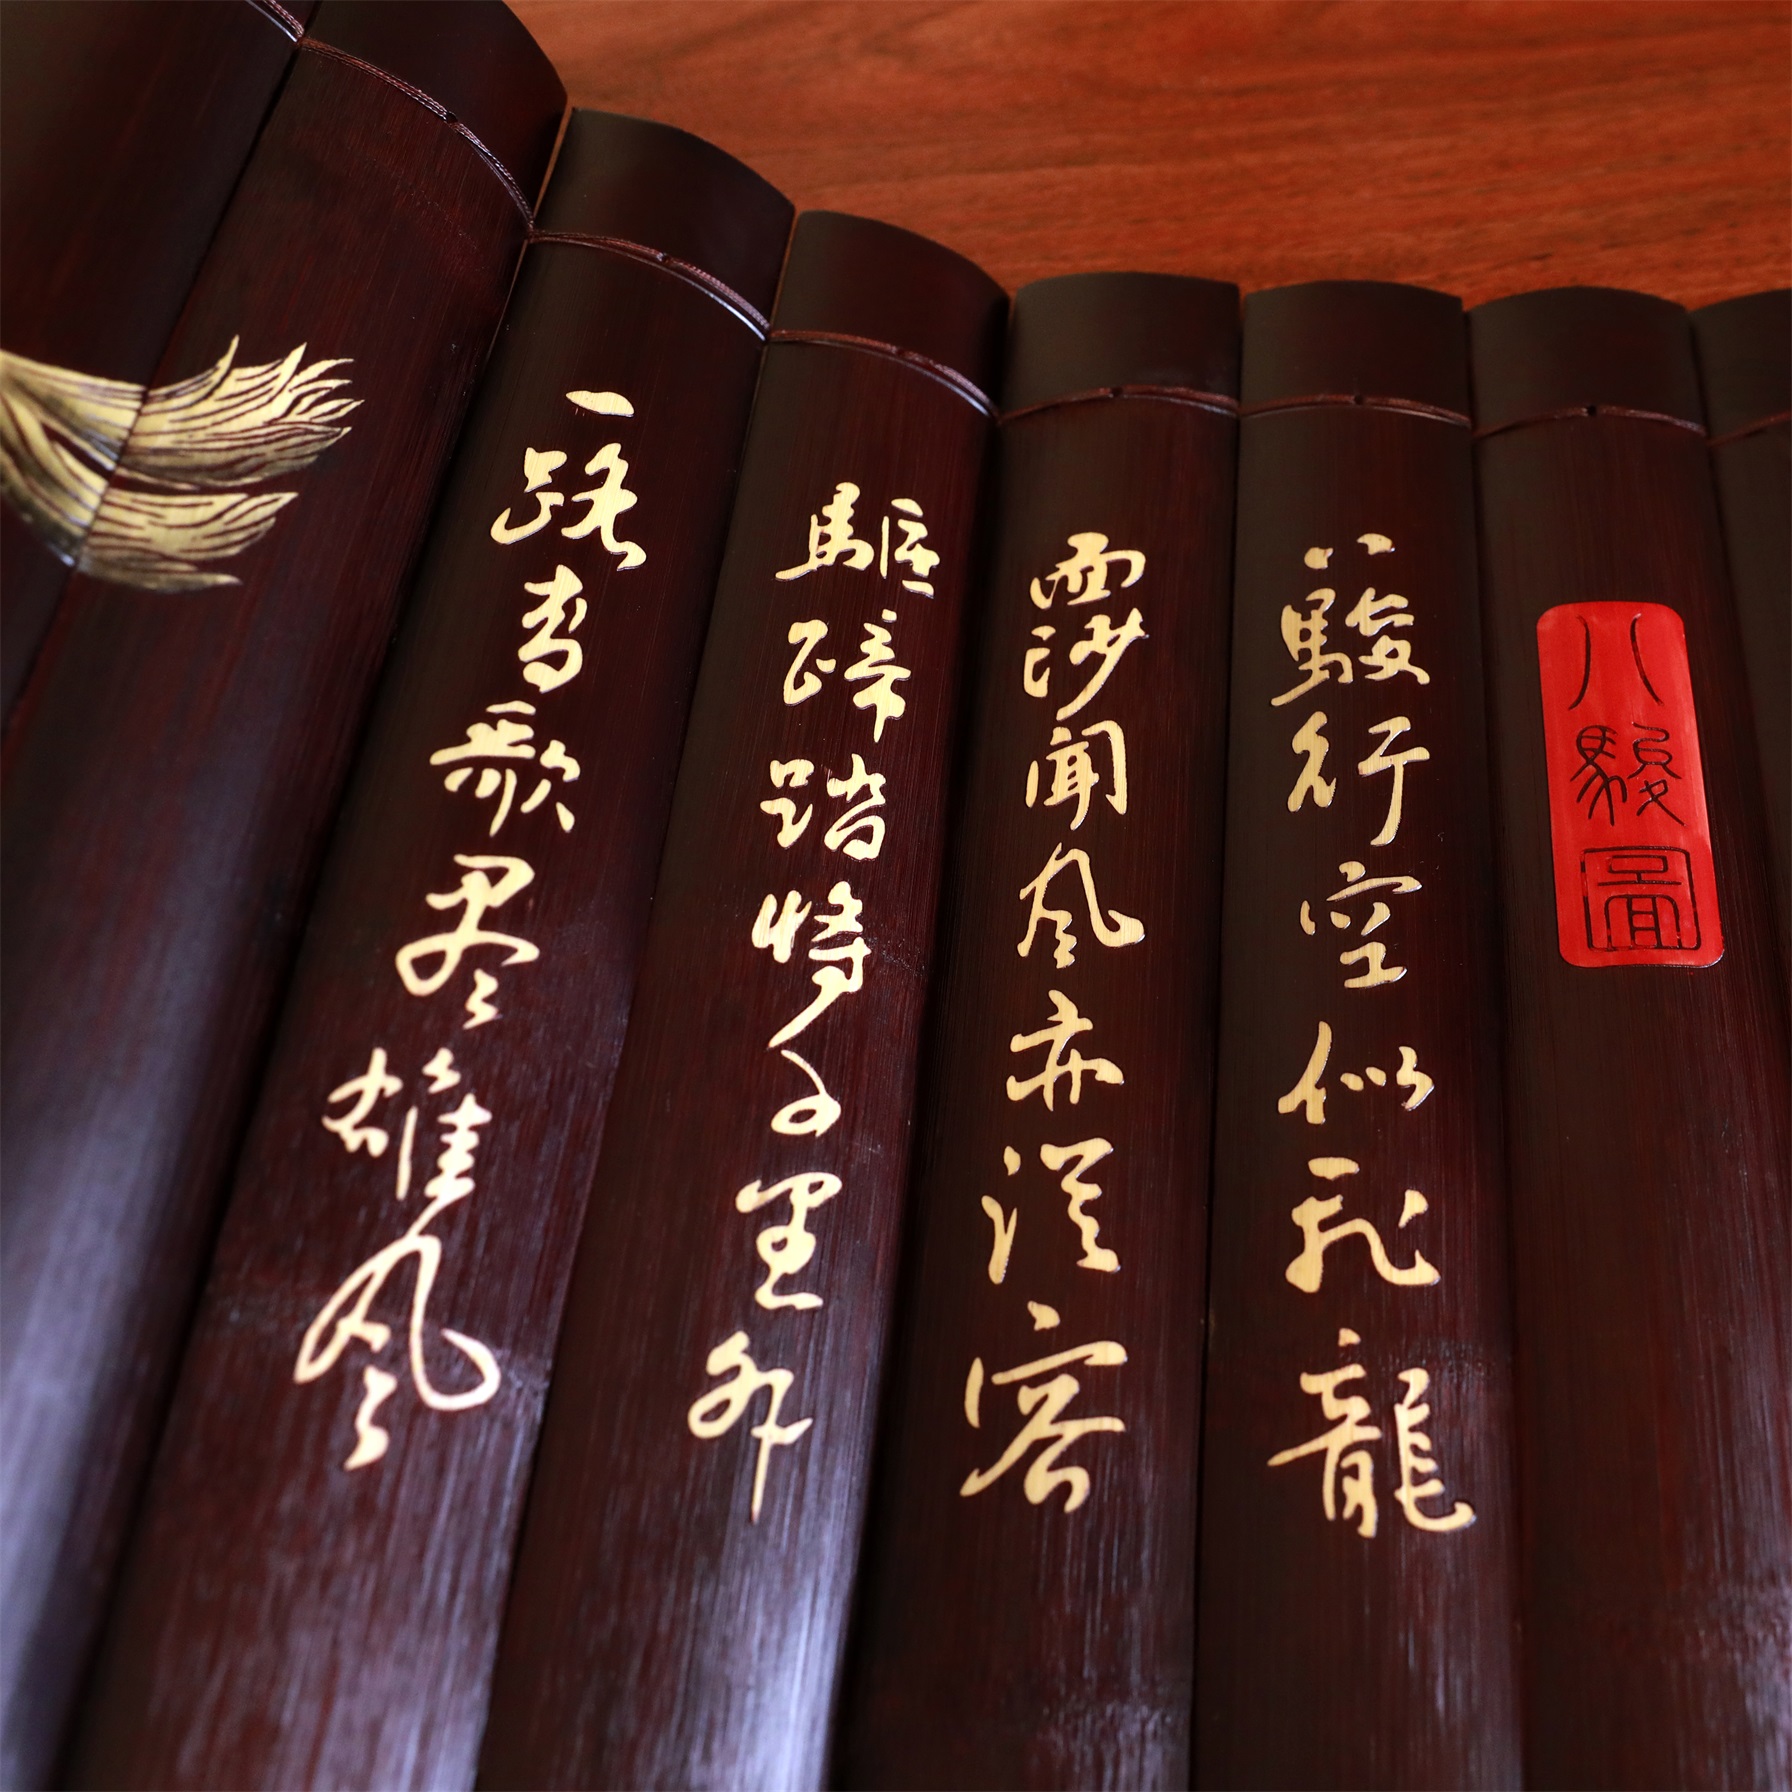 八駿圖
八駿行空似飛龍
雨沙聞風亦從容
驅蹄踏將千里外
一路高歌尽雄风